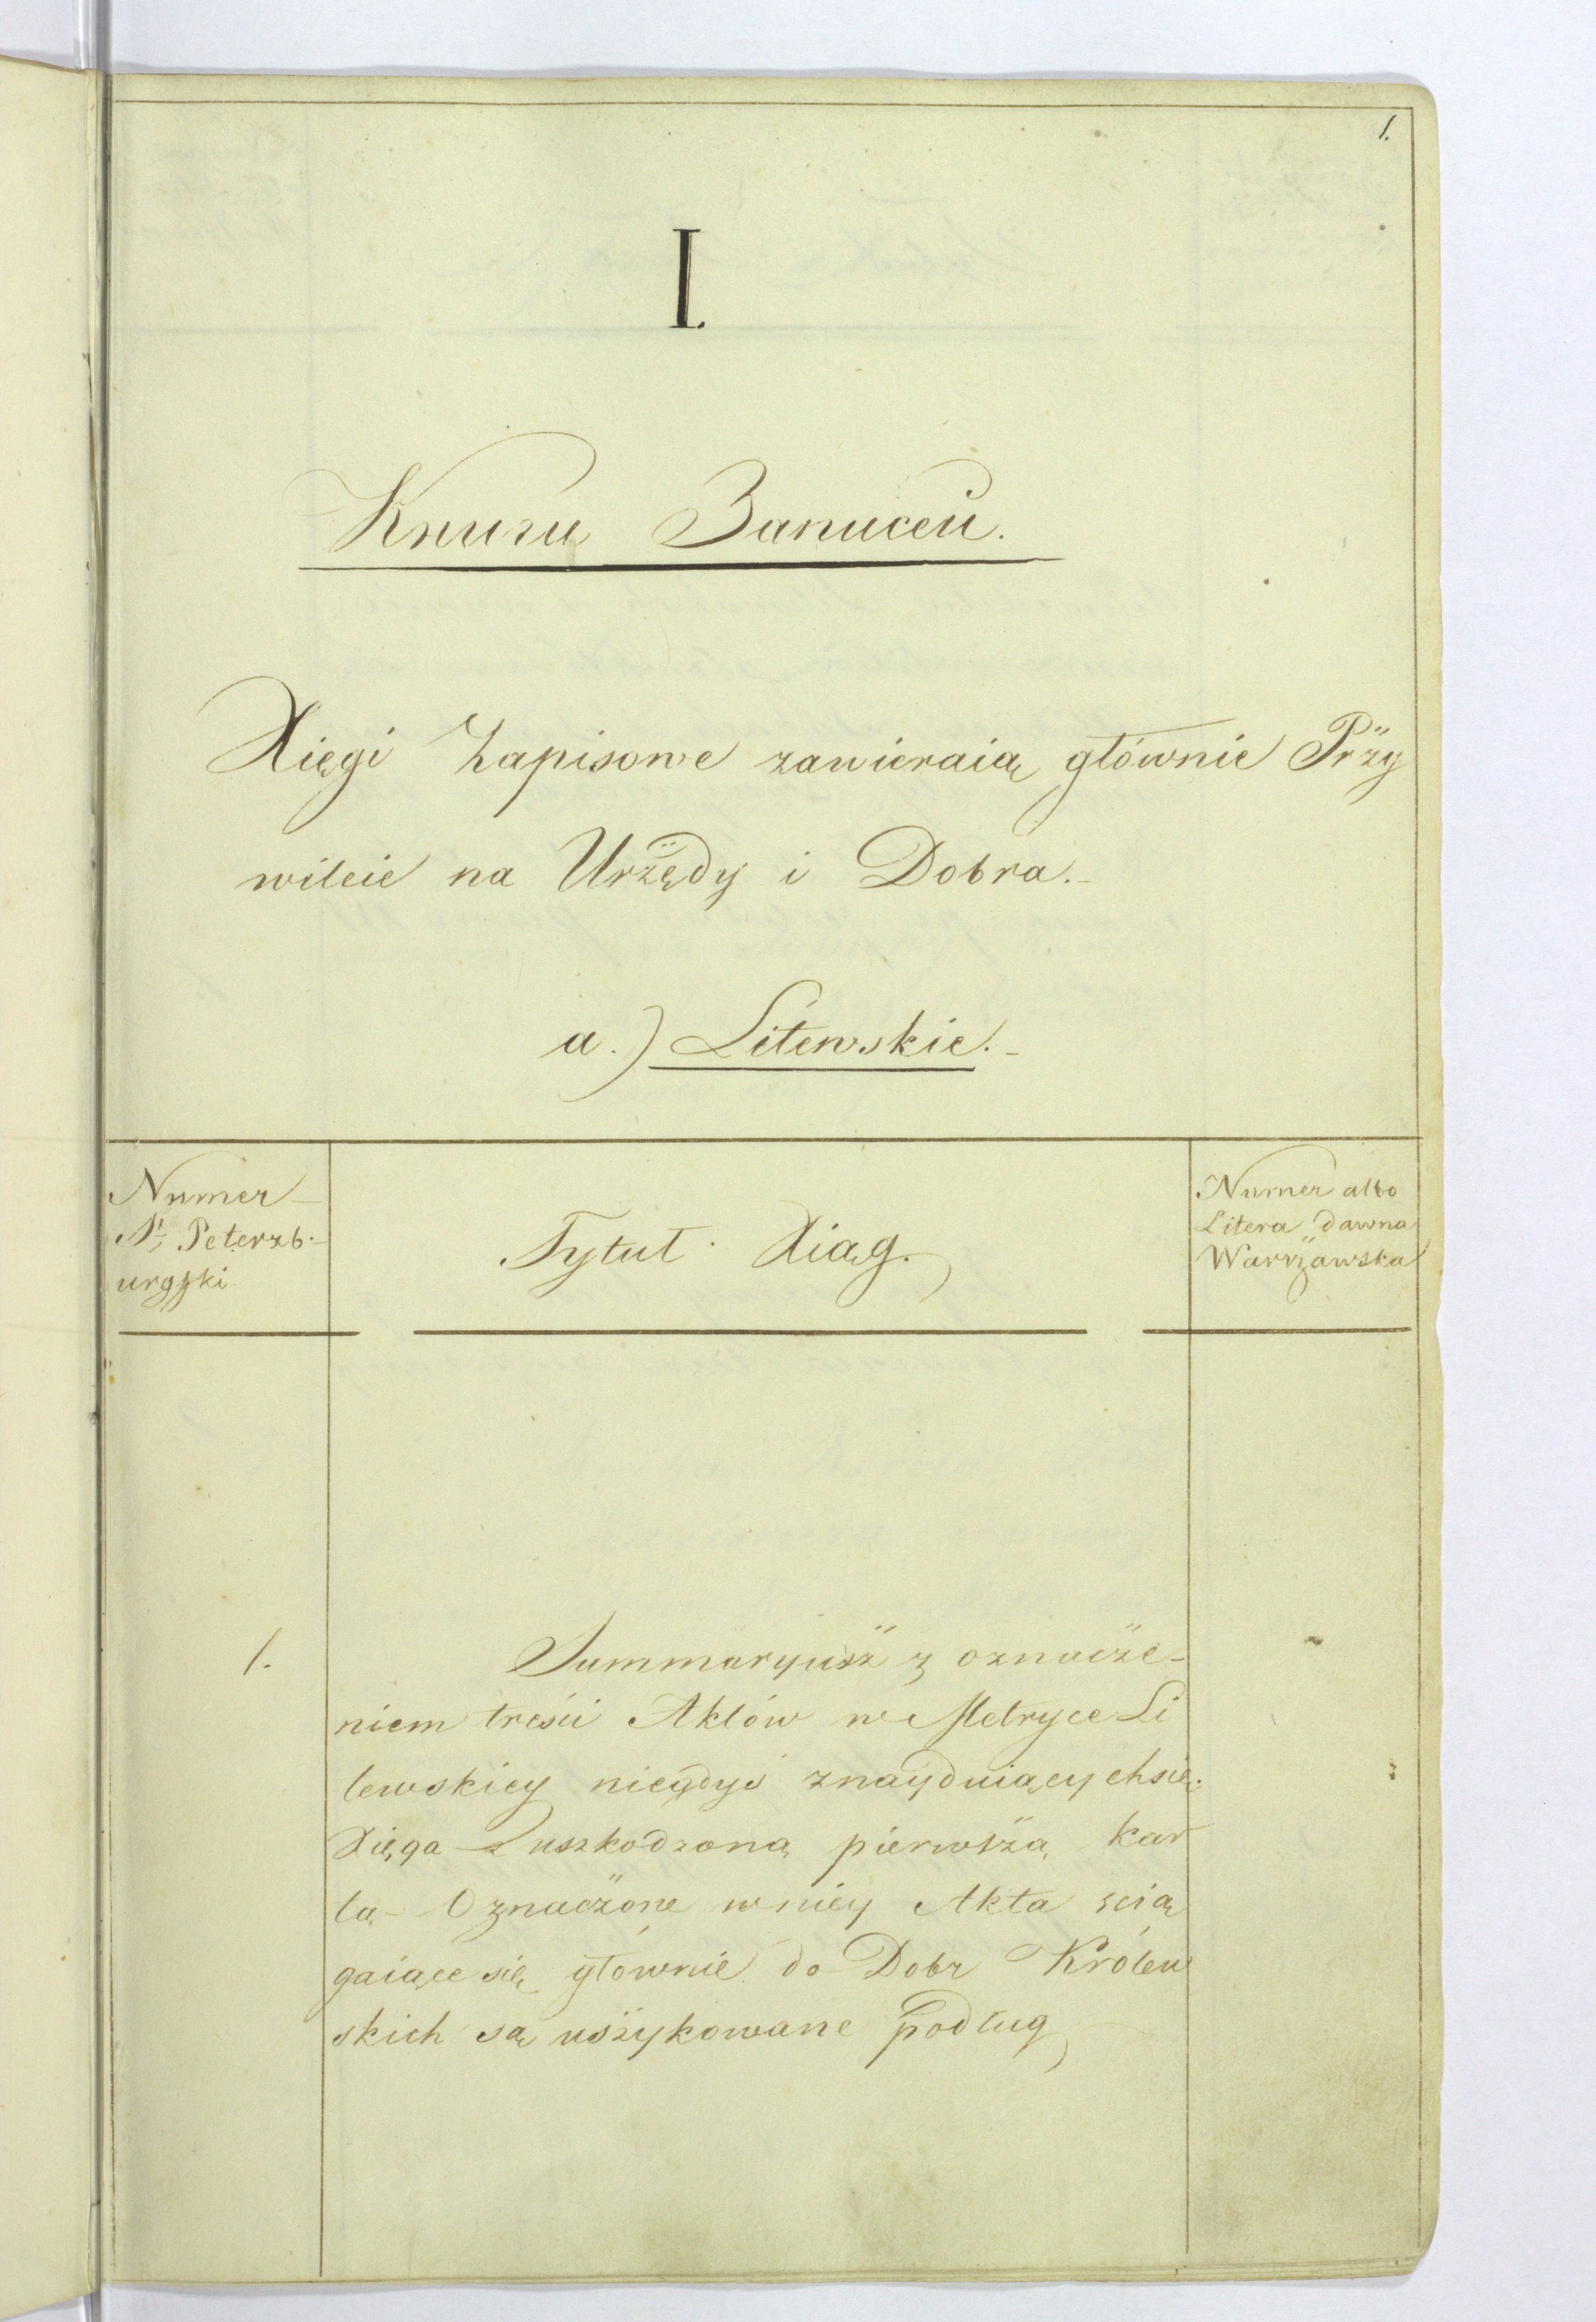 1.
I.
Книги Записей.
Xięgi Zapisowe zawieraią głównie Przy
wileie na Urzędy i Dobra.-
a.) Litewskie.-
Numer
St Peterzb-
urgski
Tytuł Xiąg.
Numer albo
Litera dawna
Warszawska
1.
Summaryusz z oznacze-
niem treści Aktów w Metryce Li
tewskiey niegdyś znayduiących się.
Xięga z uszkodzoną pierwszą kar
tą - Oznaczone w niey Akta scią
gaiące się głównie do Dobr Królew
skich są uszykowane podług